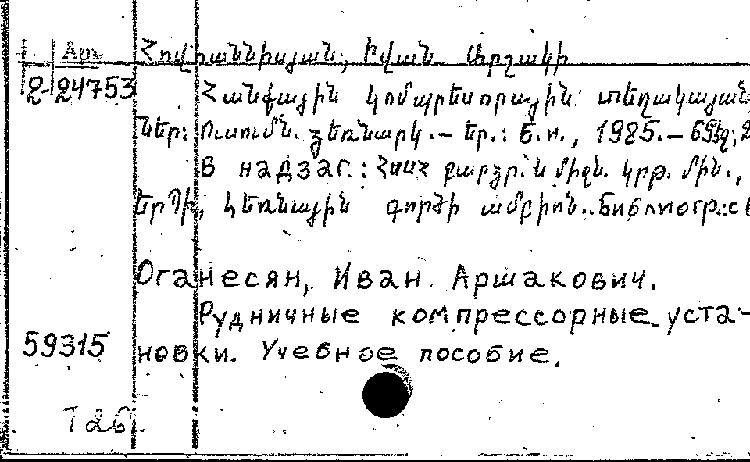 Առ. Հովհաննիսյան, Իվան Արշակի
Զ 24753 Հանքային կոմպրեսորային տեղակայանք-
ներ: Ուսումն. ձեռնարկ.— Եր.: Б.и., 1985.— 69 էջ,
В надзаг.: ՀՍՍՀ բարձր. և միջն. կրթ. մին.,
ԵրՊԻ, Լեռնային գործի ամբիոն. Библиогр.: с
Оганесян, Иван Аршакович.
Рудничные компрессорные уста-
59315 новки. Учебное пособие.
Т 26.